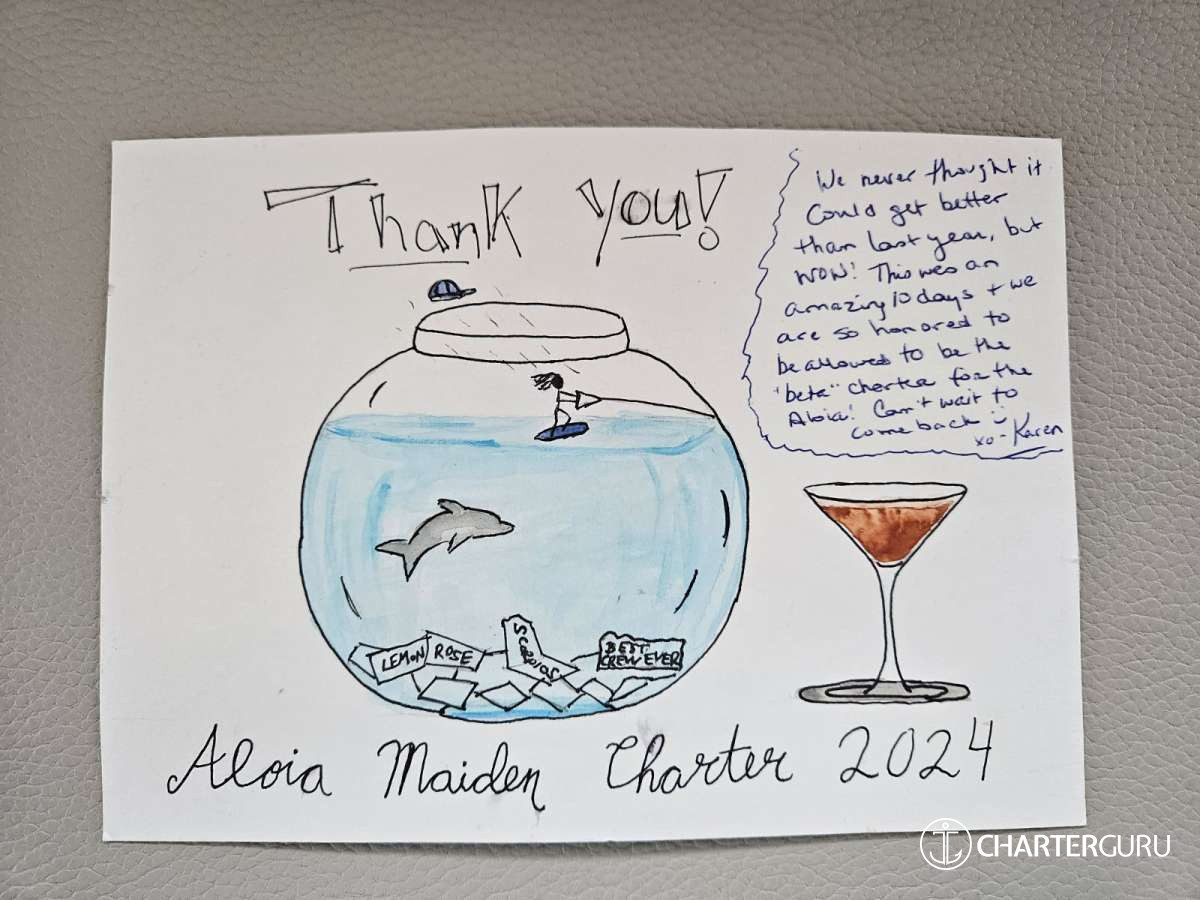 Thank You!
We never thought it
could get better
than last year, but
WOW! This was an
amazing 10 days + we
are so honored to
be allowed to be the
"beta" charter for the
Aloia! Can't wait to
come back :)
xo - Karen
LEMON ROSE
SCORPIOS
BEST
CREW EVER
Aloia Maiden Charter 2024
CHARTERGURU